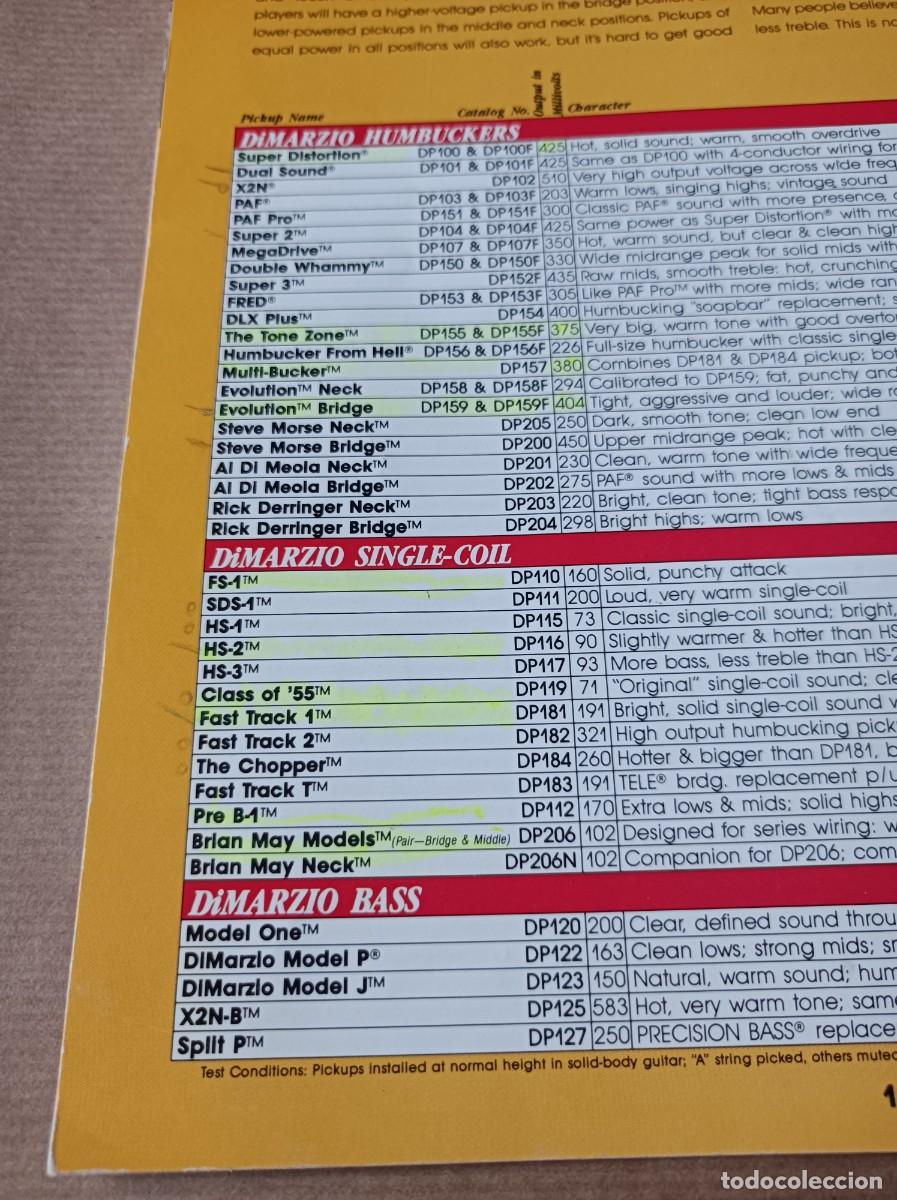 players will have a higher-voltage pickup in the bridge position,
lower-powered pickups in the middle and neck positions. Pickups of
equal power in all positions will also work, but it's hard to get good
Many people believe
less treble. This is no
Pickup Name Catalog No. Output in Millivolts Character
DiMARZIO HUMBUCKERS
Super Distortion® DP100 & DP100F 425 Hot, solid sound; warm, smooth overdrive
Dual Sound® DP101 & DP101F 425 Same as DP100 with 4-conductor wiring for
X2N® DP102 510 Very high output voltage across wide freq
PAF® DP103 & DP103F 203 Warm lows, singing highs; vintage sound
PAF Pro™ DP151 & DP151F 300 Classic PAF® sound with more presence,
Super 2™ DP104 & DP104F 425 Same power as Super Distortion® with mo
MegaDrive™ DP107 & DP107F 350 Hot, warm sound, but clear & clean high
Double Whammy™ DP150 & DP150F 330 Wide midrange peak for solid mids with
Super 3™ DP152F 435 Raw mids, smooth treble: hot, crunching
FRED® DP153 & DP153F 305 Like PAF Pro™ with more mids; wide ran
DLX Plus™ DP154 400 Humbucking "soapbar" replacement; s
The Tone Zone™ DP155 & DP155F 375 Very big, warm tone with good overto
Humbucker From Hell® DP156 & DP156F 226 Full-size humbucker with classic single
Multi-Bucker™ DP157 380 Combines DP181 & DP184 pickup; bot
Evolution™ Neck DP158 & DP158F 294 Calibrated to DP159; fat, punchy and
Evolution™ Bridge DP159 & DP159F 404 Tight, aggressive and louder; wide ra
Steve Morse Neck™ DP205 250 Dark, smooth tone; clean low end
Steve Morse Bridge™ DP200 450 Upper midrange peak; hot with cle
Al Di Meola Neck™ DP201 230 Clean, warm tone with wide freque
Al Di Meola Bridge™ DP202 275 PAF® sound with more lows & mids
Rick Derringer Neck™ DP203 220 Bright, clean tone; tight bass respo
Rick Derringer Bridge™ DP204 298 Bright highs; warm lows
DiMARZIO SINGLE-COIL
FS-1™ DP110 160 Solid, punchy attack
SDS-1™ DP111 200 Loud, very warm single-coil
HS-1™ DP115 73 Classic single-coil sound; bright,
HS-2™ DP116 90 Slightly warmer & hotter than HS
HS-3™ DP117 93 More bass, less treble than HS-2
Class of '55™ DP119 71 "Original" single-coil sound; cle
Fast Track 1™ DP181 191 Bright, solid single-coil sound w
Fast Track 2™ DP182 321 High output humbucking pick
The Chopper™ DP184 260 Hotter & bigger than DP181, b
Fast Track T™ DP183 191 TELE® brdg. replacement p/u
Pre B-1™ DP112 170 Extra lows & mids; solid highs
Brian May Models™ (Pair—Bridge & Middle) DP206 102 Designed for series wiring: w
Brian May Neck™ DP206N 102 Companion for DP206; com
DiMARZIO BASS
Model One™ DP120 200 Clear, defined sound throu
DiMarzio Model P® DP122 163 Clean lows; strong mids; sn
DiMarzio Model J™ DP123 150 Natural, warm sound; hum
X2N-B™ DP125 583 Hot, very warm tone; same
Split P™ DP127 250 PRECISION BASS® replace
Test Conditions: Pickups installed at normal height in solid-body guitar; "A" string picked, others muted
1
todocoleccion